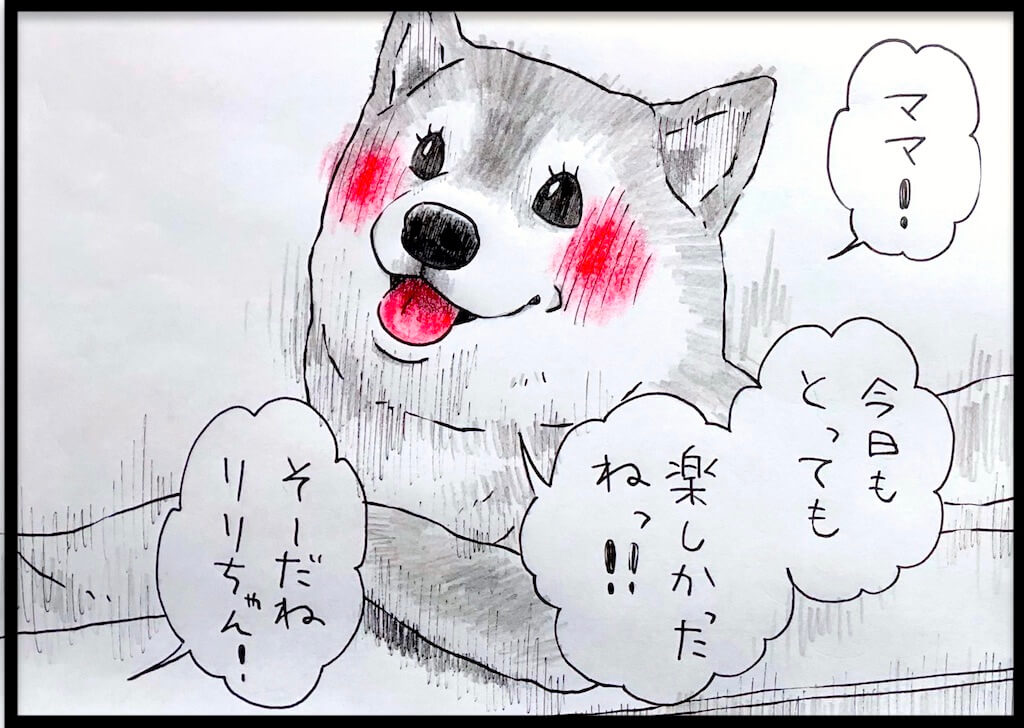 ママ!
今日も
とっても
楽しかった
ねっ!!
そーだね
リリちゃん!